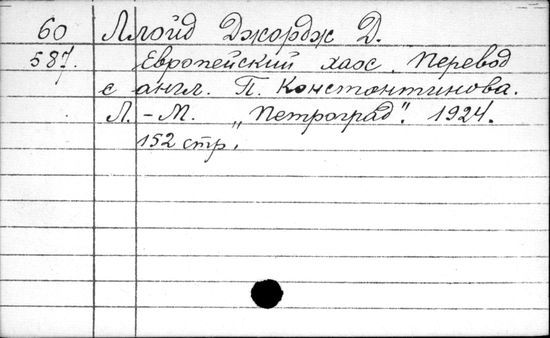 60 Ллойд Джордж Д.
587. Европейский хаос. Перевод
с англ. П. Константинова.
Л.-М. „Петроград". 1924.
152 стр.